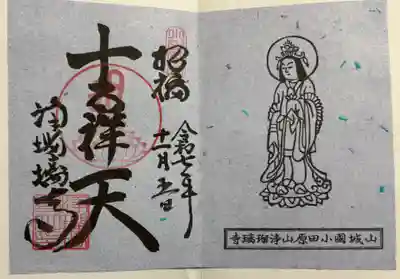 令和七年
十一月五日
招福
吉祥天
浄瑠璃寺
山城國小田原山浄瑠璃寺